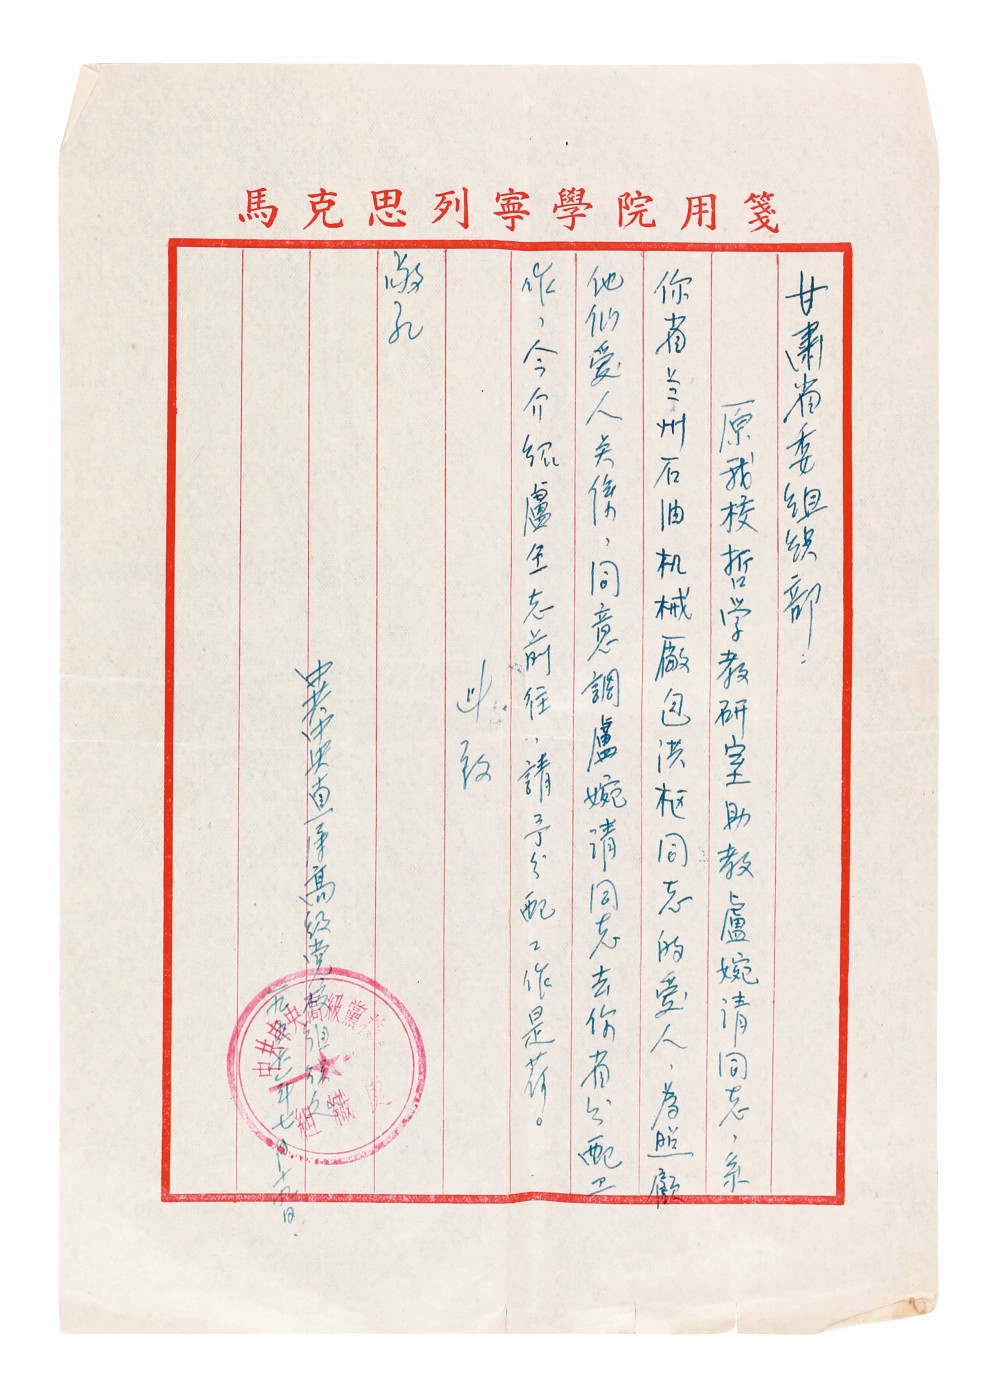 馬克思列寧學院用箋
甘肅省委組织部：
原我校哲学教研室助教盧婉请同志，系
你省兰州石油机械廠包洪枢同志的爱人，為照顧
他们爱人关係，同意調盧婉请同志去你省分配工
作，今介绍盧同志前往，請予分配工作是荷。
此致
敬礼
中共中央直属高级党校组织处
一九五六年七月十九日
中共中央高級黨校
組織處